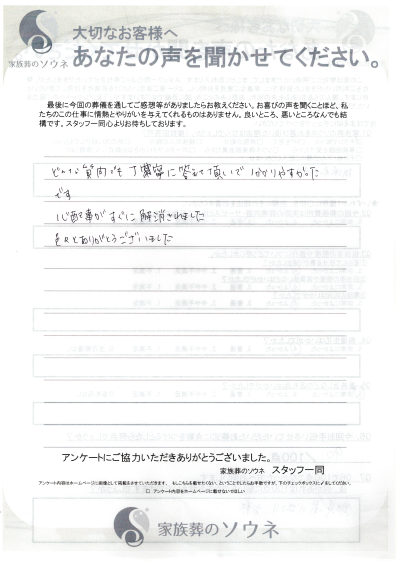 家族葬のソウネ
大切なお客様へ
あなたの声を聞かせてください。
最後に今回の葬儀を通してご感想等がありましたらお教えください。お喜びの声を聞くことほど、私
たちのこの仕事に情熱とやりがいを与えてくれるものはありません。良いところ、悪いところなんでも結
構です。スタッフ一同心よりお待ちしております。
どんな質問でも丁寧に答えて頂いて わかりやすかった
です
心配事がすぐに解消されました
色々とありがとうございました
アンケートにご協力いただきありがとうございました。
家族葬のソウネ スタッフ一同
アンケート内容はホームページに画像として掲載をさせていただきます。もしこちらを載せたくない、ということでしたらお手数ですが、下のチェックボックスに✓をしてください。
□ アンケート内容をホームページに載せないでほしい
家族葬のソウネ